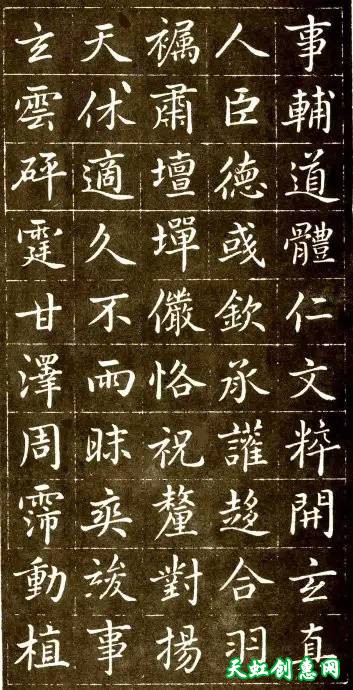 事輔道體仁文粹開玄真
人臣德彧欽承讙趍合羽
肅壇墠儼恪祝釐對揚
天休適久不雨昧爽竣事
玄雲砰霆甘澤周霈動植
天虹创意网